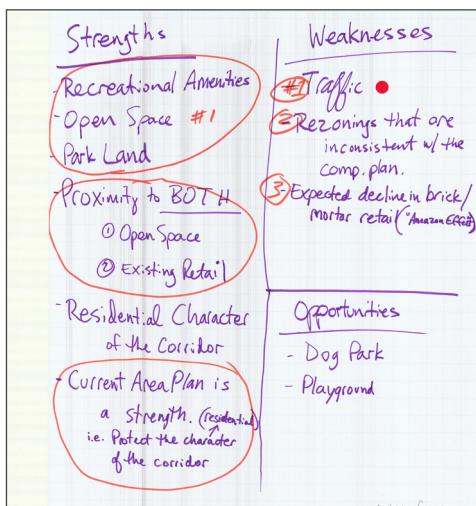 Strengths
- Recreational Amenities
- Open Space #1
- Park Land
- Proximity to BOTH
① Open Space
② Existing Retail
- Residential Character
of the Corridor
- Current Area Plan is
a strength. (residential)
i.e. Protect the character
of the corridor
Weaknesses
#1 - Traffic
2 - Rezonings that are
inconsistent w/ the
comp. plan.
3 - Expected decline in brick/
mortar retail ("Amazon Effect")
Opportunities
- Dog Park
- Playground